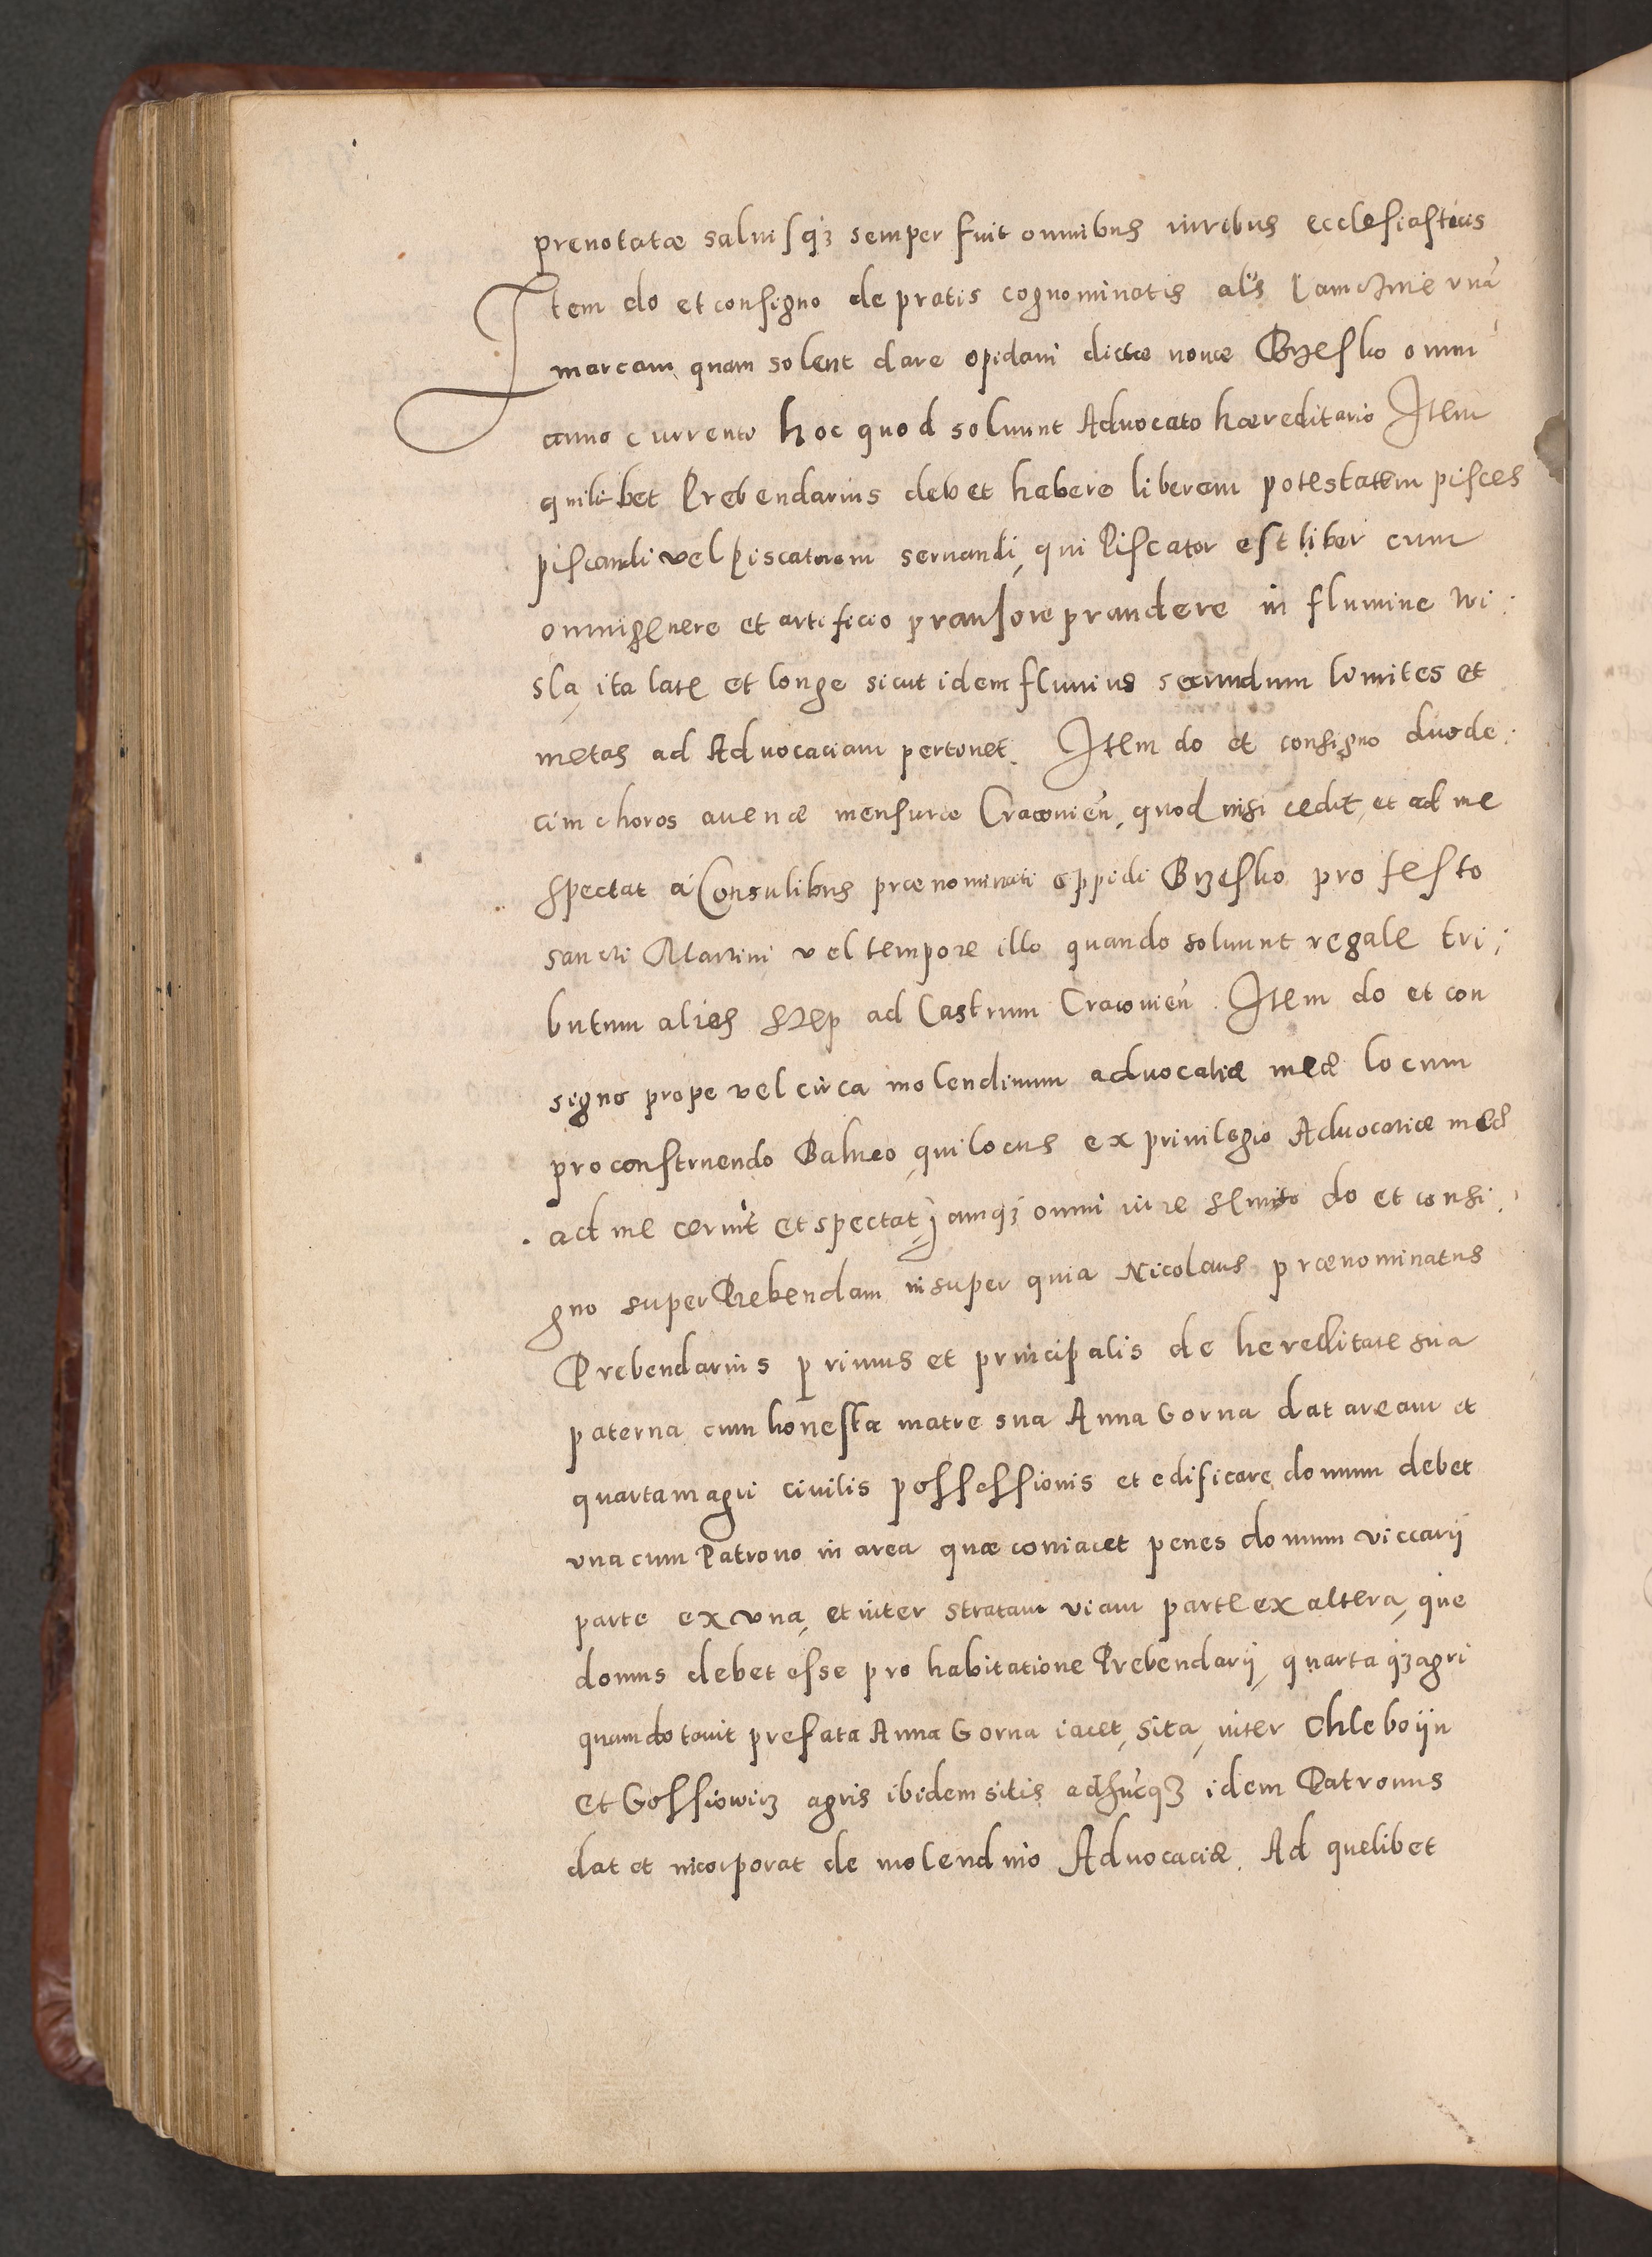 prenotatæ saluisqꝫ semper fuit omnibus iuribus ecclesiasticis
Item do et consigno de pratis cognominatis al̃s unã
marcam quam solent dare opidani dictæ nouæ Brzesko omni
anno currente hoc quod soluunt Aduocato hæreditario Item
quilibet Prebendarius debet habere liberam potestatem pisces
piscandi vel piscatorem seruandi, qui Piscator est liber cum
omni genere et artificio prandere in flumine Wi:
sla, ita late et longe sicut idem fluuius secundum limites et
metas ad Aduocaciam pertinet. Item do et consigno duode:
cim choros auenæ mensuræ Cracouieñ, quod mihi cedit, et ad me
spectat á Consulibus prænominati oppidi Brzesko pro festo
sancti Martini vel tempore illo quando soluunt regale tri:
butum alias szep ad Castrum Cracouieñ. Item do et con
signo prope vel circa molendinum aduocatiæ meæ locum
pro construendo Balneo, qui locus ex priuilegio Aduocatiæ meæ
ad me et spectat, iamqꝫ omni iure do et consi:
gno super Prebendam insuper quia Nicolaus prænominatus
Prebendarius primus et principalis de hereditate sua
paterna cum honesta matre sua Anna Gorna dat aream et
quartam agri ciuilis possessionis et edificare domum debet
vna cum Patrono in area quæ coniacet penes domum viccarij
parte ex vna, et inter stratam viam parte ex altera, que
domus debet esse pro habitatione Prebendarij, quarta qꝫ agri
quam dotauit prefata Anna Gorna iacet, sita, inter Chleboijn
et Gossiowicz agris ibidem sitis adhucqꝫ idem Patronus
dat et incorporat de molendino Aduocaciæ. Ad quelibet